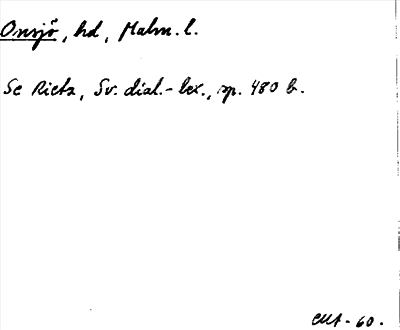 Onsjö, hd, Malm. l.
Se Rietz, Sv. dial.-lex., sp. 480 b.
-60.